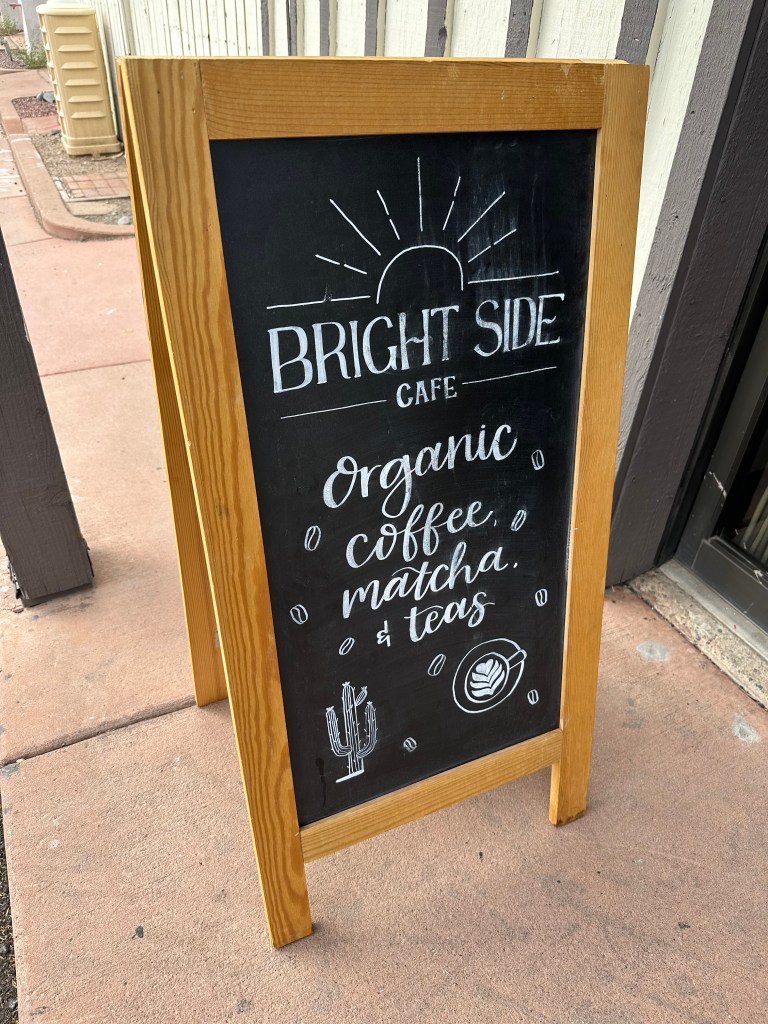 BRIGHT SIDE
CAFE
Organic
coffee,
matcha,
& teas